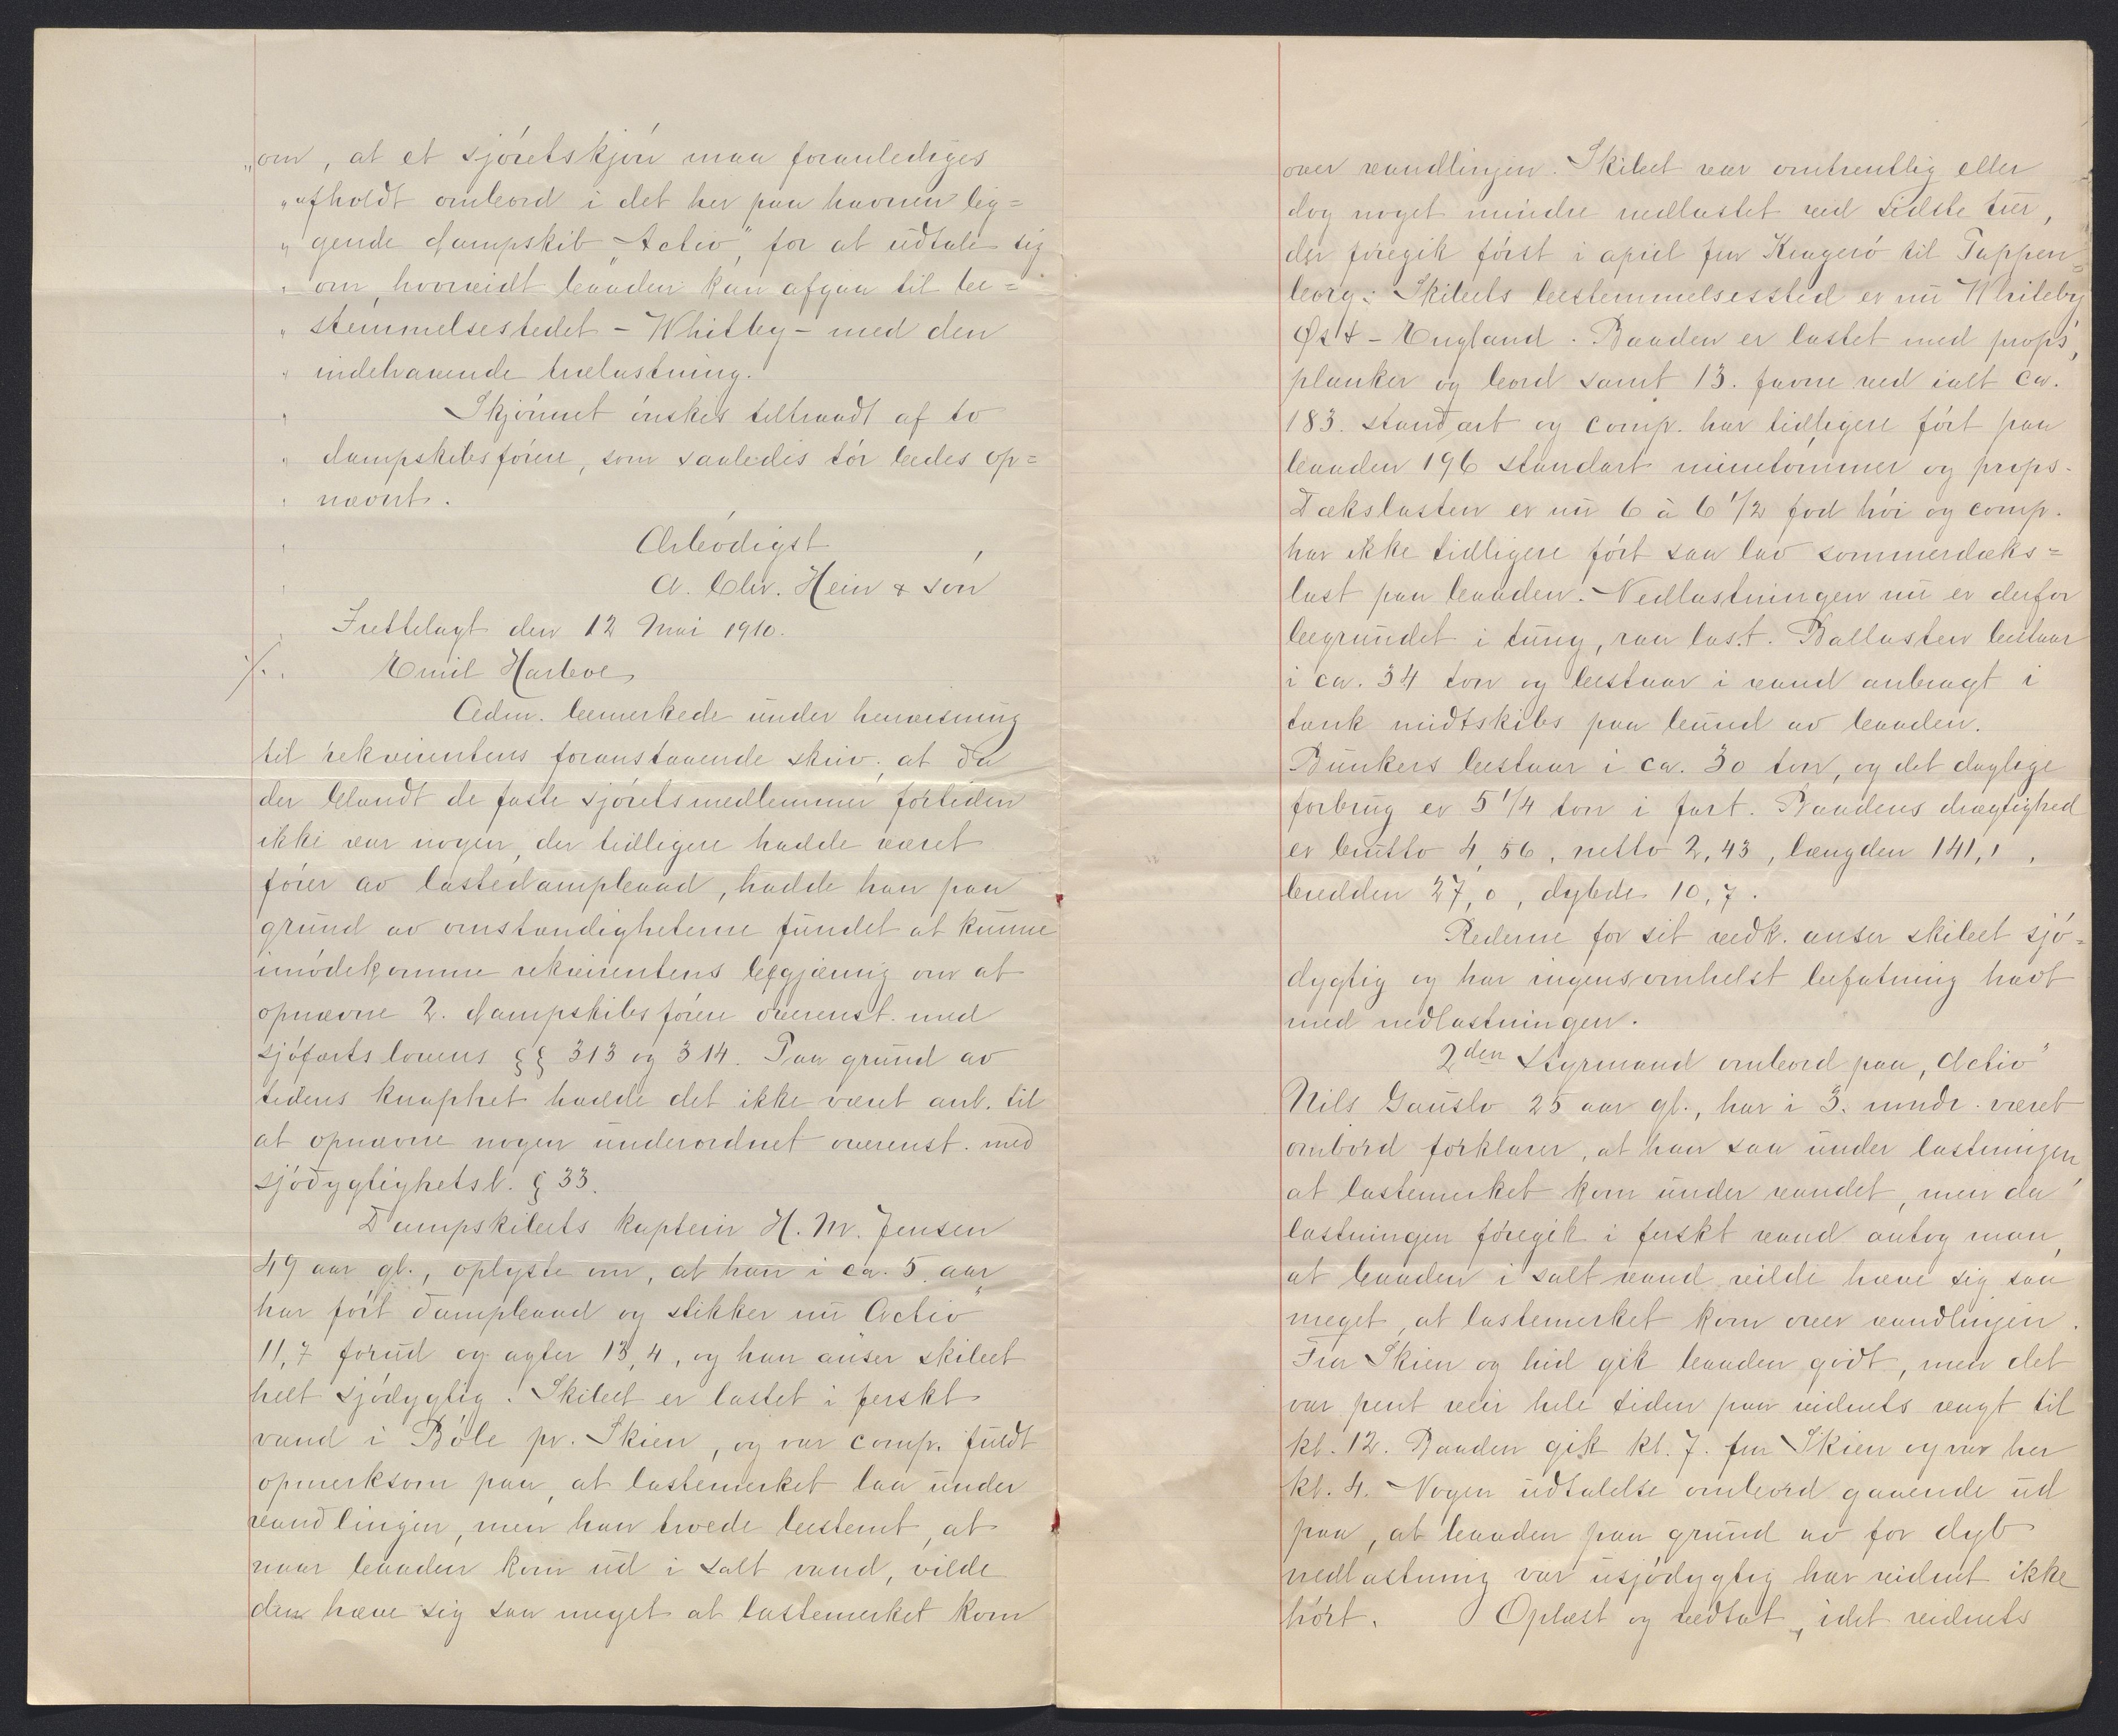 „om, at et sjøretskjøn maa foranlediges
„ afholdt ombord i det her paa havnen lig=
„ gende dampskib „Activ", for at udtale sig
„ om, hvorvidt baaden kan afgaa til be=
„ stemmelsestedet - Whitby - med den
„ indehavende trælastning.
„ Skjønnet ønskes tiltraadt af to
„ dampskibsførere, som saaledes tør bedes op=
„ nævnt.
„ Ærbødigst
„ A. Chr. Hein & søn
„ Irettelagt den 12 Mai 1910.
./. Emil Harboe
Adm. bemerkede under henvisning
til rekvirentens foranstaaende skriv. at da
der blandt de faste sjøretsmedlemmer fortiden
ikke var nogen, der tidligere hadde været
fører av lastedampbaad, hadde han paa
grund av omstændigheterne fundet at kunne
imødekomme rekvirentens begjæring om at
opnævne 2. dampskibsførere overenst. med
sjøfartslovens §§ 313 og 314. Paa grund av
tidens knaphet hadde det ikke været anl. til
at opnævne nogen underordnet overenst. med
sjødygtighetsl. § 33.
Dampskibets kaptein H. M. Jensen
49 aar gl., oplyste om, at han i ca. 5 aar
har ført dampbaad og stikker nu Activ"
11,7 forud og agter 13,4, og han anser skibet
helt sjødygtig. Skibet er lastet i ferskt
vand i Bøle pr. Skien, og var comp. fuldt
opmerksom paa, at lastemerket laa under
vandlinjen, men han troede bestemt, at
naar baaden kom ud i salt vand, vilde
den hæve sig saa meget at lastemerket kom
over vandlinjen. Skibet var omtrentlig eller
dog noget mindre nedlastet ved sidste tur,
der foregik først i april fra Kragerø til Pappen=
borg. Skibets bestemmelsessted er nu Whiteby
Øst-England. Baaden er lastet med props,
planker og bord samt 13. favne ved ialt ca.
183. standart og comp. har tidligere ført paa
baaden 196 standart minetømmer og props.
Dækslasten er nu 6 à 6 1/2 fod høi og comp.
har ikke tidligere ført saa lav sommerdæks=
last paa baaden. Nedlastningen nu er derfor
begrundet i tung, raa last. Ballasten bestaar
i ca. 34 ton og bestaar i vand anbragt i
tank midtskibs paa bund av baaden.
Bunkers bestaar i ca. 30 ton, og det daglige
forbrug er 5 1/4 ton i fart. Baadens drægtighed
er brutto 4,56, netto 2,43, længden 141,1,
bredden 27,0, dybde 10,7.
Rederne for sit vedk. anser skibet sjø=
dygtig og har ingensomhelst befatning havt
med nedlastningen.
2den Styrmand ombord paa „Activ"
Nils Gauslo 25 aar gl., har i 3. mndr. været
ombord forklarer, at han saa under lastningen,
at lastemerket kom under vandet, men da
lastningen foregik i ferskt vand antog man,
at baaden i salt vand vilde hæve sig saa
meget, at lastemerket kom over vandlinjen.
Fra Skien og hid gik baaden godt, men det
var pent veir hele tiden paa vidnets vagt til
kl. 12. Baaden gik kl. 7. fra Skien og var her
kl. 4. Nogen udtalelse ombord gaaende ud
paa, at baaden paa grund av for dyb
nedlastning var usjødygtig har vidnet ikke
hørt. Oplæst og vedtat, idet vidnets